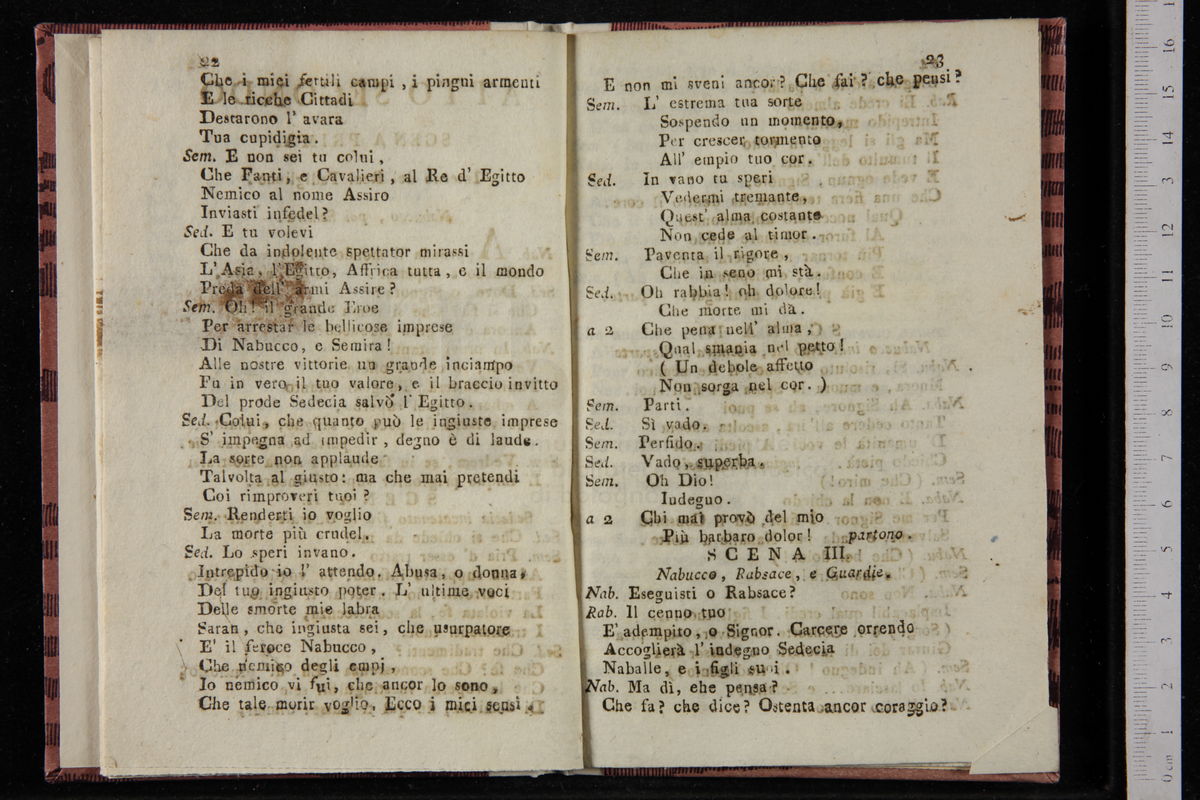 22
Che i miei fertili campi , i pingui armenti
E le ricche Cittadi
Destarono l' avara
Tua cupidigia .
Sem. E non sei tu colui ,
Che Fanti , e Cavalieri , al Re d' Egitto
Nemico al nome Assiro
Inviasti infedel ?
Sed. E tu volevi
Che da indolente spettator mirassi
L' Asia , l' Egitto, Affrica tutta , e il mondo
Preda dell' armi Assire ?
Sem. Oh ! il grande Eroe
Per arrestar le bellicose imprese
Di Nabucco, e Semira !
Alle nostre vittorie un grande inciampo
Fu in vero il tuo valore , e il braccio invitto
Del prode Sedecia salvò l' Egitto .
Sed. Colui , che quanto può le ingiuste imprese
S' impegna ad impedir , degno è di laude .
La sorte non applaude
Talvolta al giusto : ma che mai pretendi
Coi rimproveri tuoi ?
Sem. Renderti io voglio
La morte più crudel .
Sed. Lo speri invano .
Intrepido io l' attendo. Abusa , o donna ,
Del tuo ingiusto poter . L' ultime voci
Delle smorte mie labra
Saran , che ingiusta sei , che usurpatore
E' il feroce Nabucco ,
Che nemico degli empj ,
Io nemico vi fui , che ancor lo sono ,
Che tale morir voglio. Ecco i miei sensi .
23
E non mi sveni ancor ? Che fai ? che pensi ?
Sem. L' estrema tua sorte
Sospendo un momento,
Per crescer tormento
All' empio tuo cor .
Sed. In vano tu speri
Vedermi tremante,
Quest' alma costante
Non cede al timor .
Sem. Paventa il rigore ,
Che in seno mi stà .
Sed. Oh rabbia ! oh dolore !
Che morte mi dà .
a 2 Che pena nell' alma ,
Qual smania nel petto !
( Un debole affetto
Non sorga nel cor . )
Sem. Parti .
Sed. Sì vado .
Sem. Perfido .
Sed. Vado , superba .
Sem. Oh Dio !
Indegno .
a 2 Chi mai provò del mio
Più barbaro dolor ! partono .
SCENA III.
Nabucco , Rabsace , e Guardie .
Nab. Eseguisti o Rabsace ?
Rab. Il cenno tuo
E' adempito , o Signor. Carcere orrendo
Accoglierà l' indegno Sedecia
Naballe, e i figli suoi .
Nab. Ma dì, che pensa ?
Che fa ? che dice ? Ostenta ancor coraggio ?